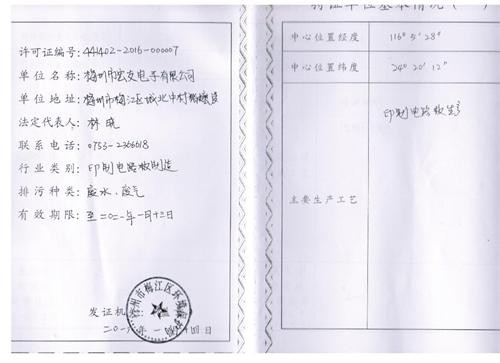 许可证编号: 441402-2016-000007
单位名称: 梅州市宏友电子有限公司
单位地址: 梅州市梅江区城北中村
法定代表人: 林晓
联系电话: 0753-2366618
行业类别: 印制电路板制造
排污种类: 废水、废气
有效期限: 至二〇二一年一月十三日
梅州市梅江区环境
发证机关:
持证单位基本情况
中心位置经度 116° 5′ 28″
中心位置纬度 24° 20′ 12″
主要生产工艺 印制电路板生产